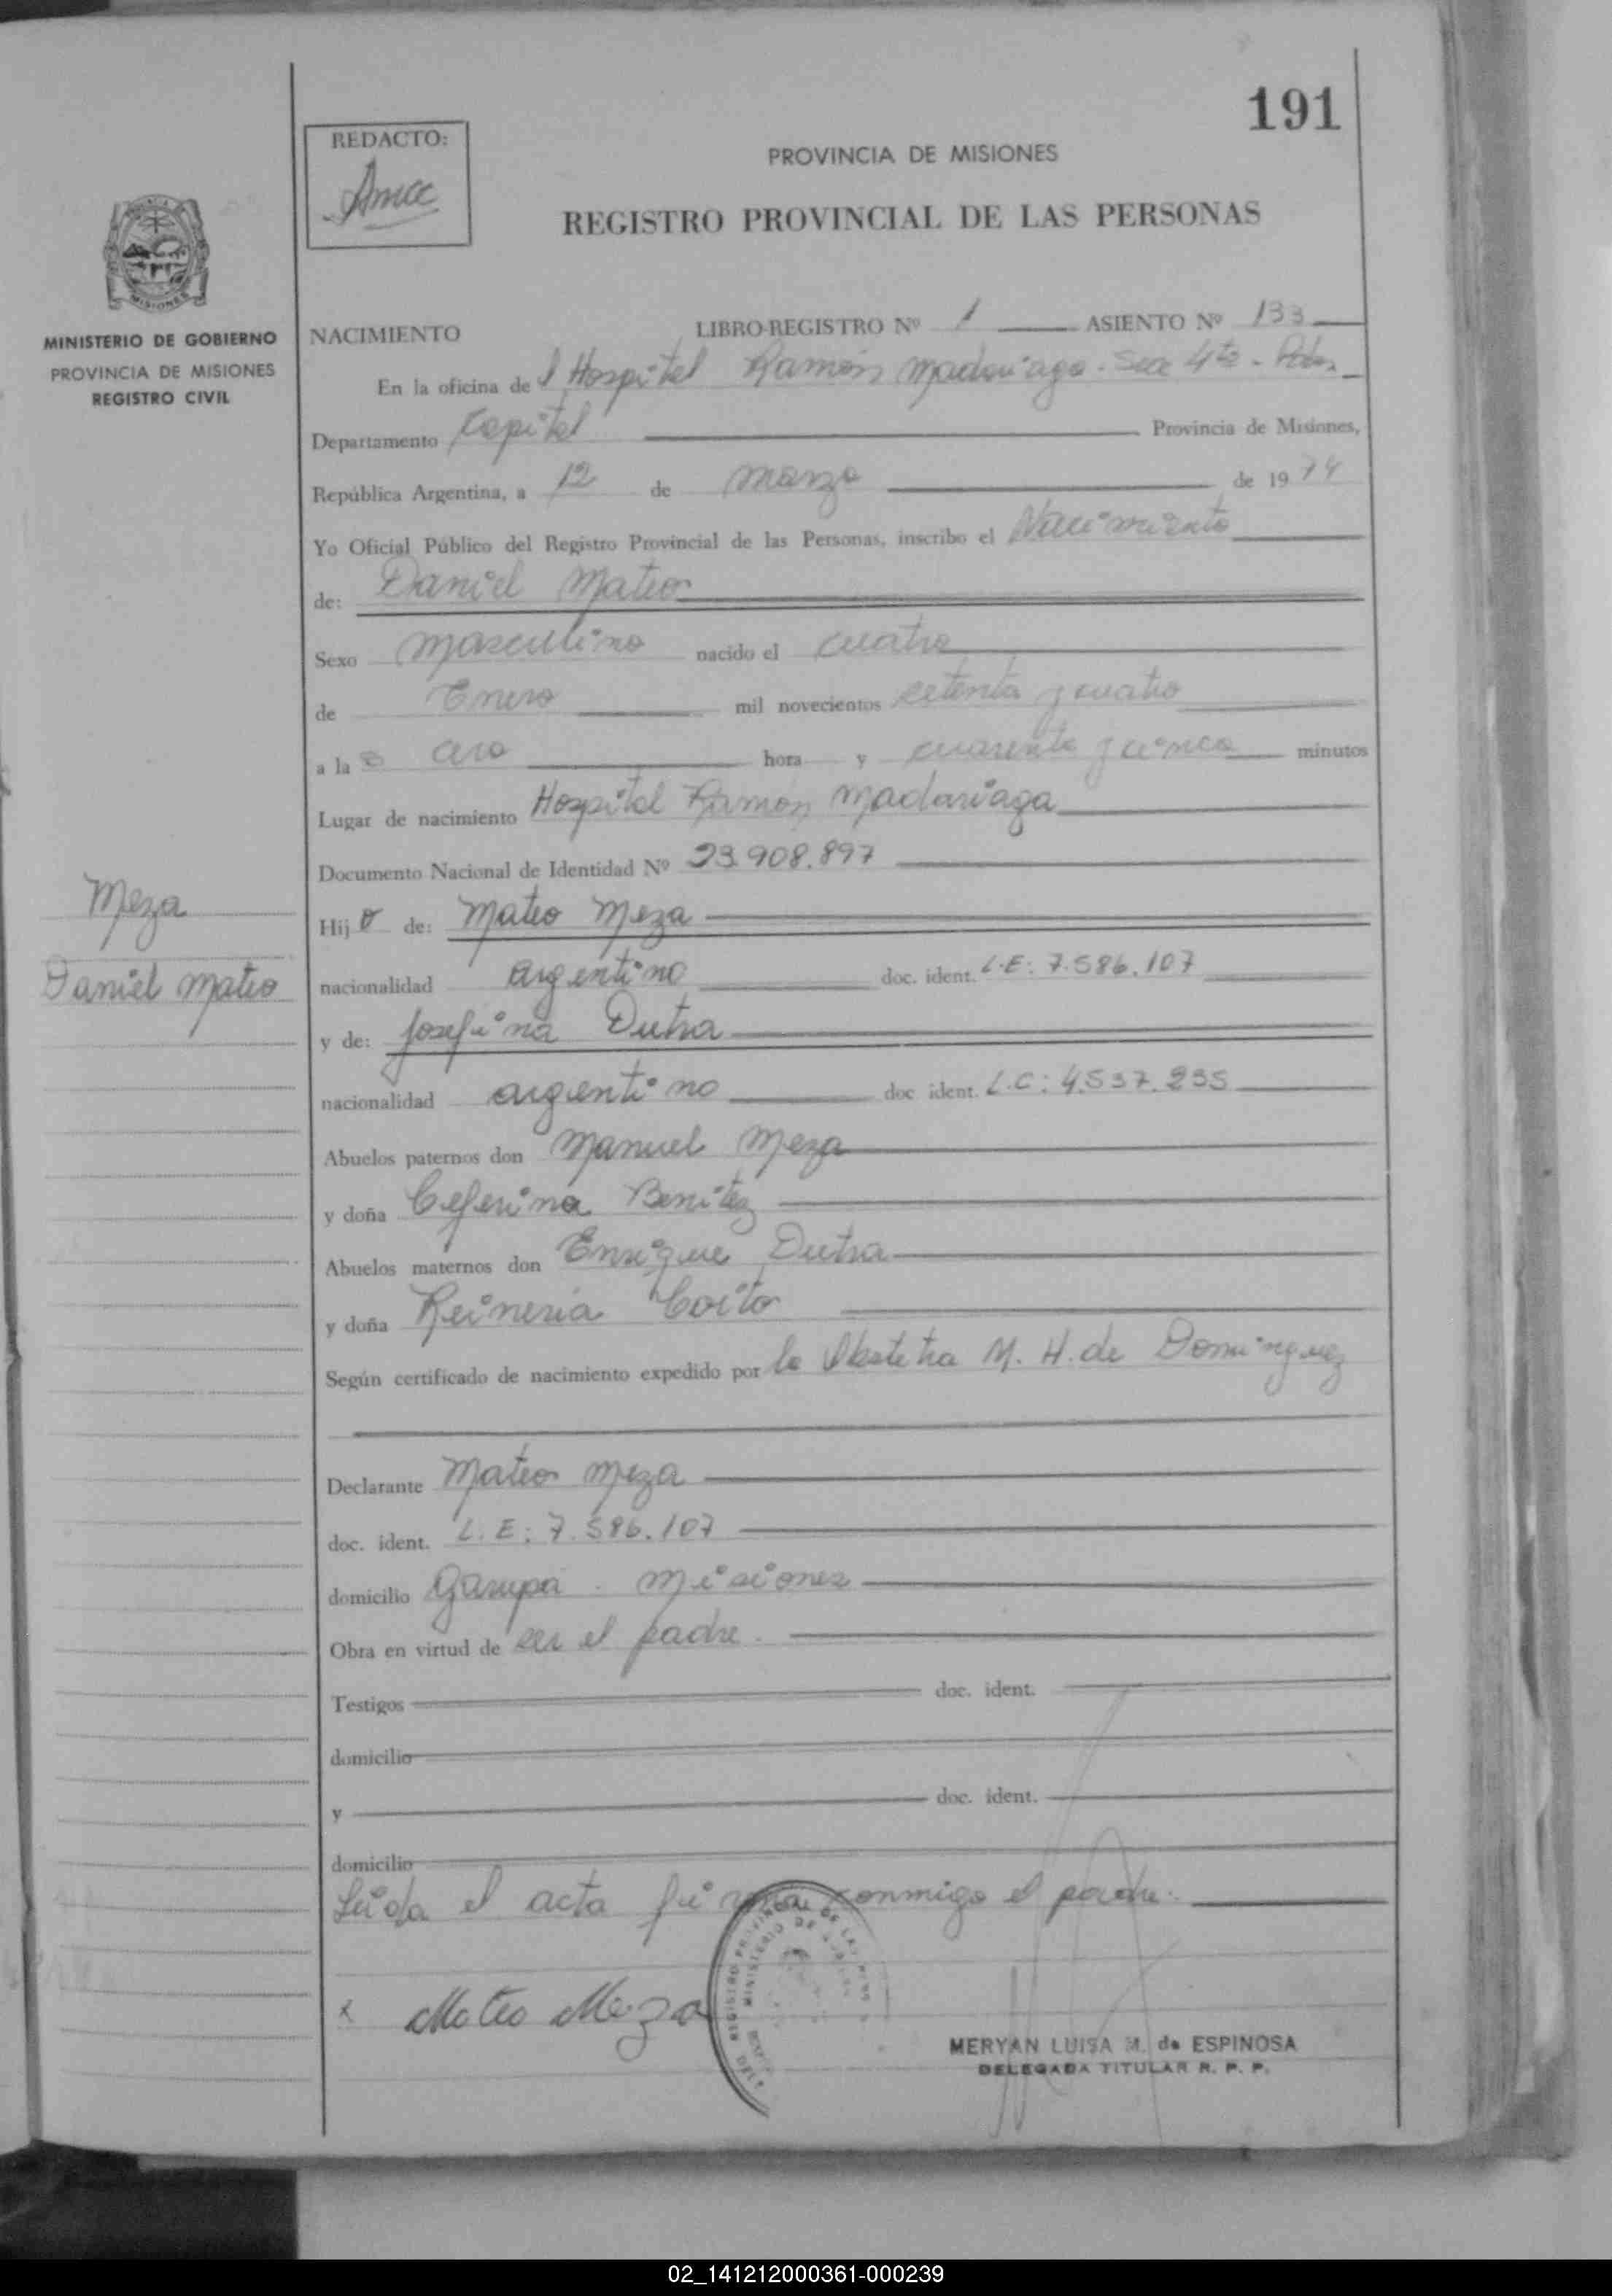 191
REDACTO:
PROVINCIA DE MISIONES
REGISTRO PROVINCIAL DE LAS PERSONAS
MISIONES
MINISTERIO DE GOBIERNO
PROVINCIA DE MISIONES
REGISTRO CIVIL
NACIMIENTO LIBRO-REGISTRO Nº 1 ASIENTO Nº 133
En la oficina del Hospital Ramón Madariaga - Secc 4ta - Pdas.
Departamento Capital Provincia de Misiones,
República Argentina, a 12 de marzo de 1974
Yo Oficial Público del Registro Provincial de las Personas, inscribo el Nacimiento
de: Daniel Mateo
Sexo masculino nacido el cuatro
de Enero mil novecientos setenta y cuatro
a la s cero hora y cuarenta y cinco minutos
Lugar de nacimiento Hospital Ramón Madariaga
Documento Nacional de Identidad Nº 23.908.897
Meza
Daniel Mateo
Hijo de: Mateo Meza
nacionalidad argentino doc. ident. L.E: 7.586.107
y de: Josefina Dutra
nacionalidad argentino doc ident. L.C: 4.537.235
Abuelos paternos don Manuel Meza
y doña Ceferina Benitez
Abuelos maternos don Enrique Dutra
y doña Reineria Coito
Según certificado de nacimiento expedido por la Obstetra M. H. de Dominguez
Declarante Mateo Meza
doc. ident. L.E: 7.586.107
domicilio Garupa - Misiones
Obra en virtud de ser el padre.
Testigos doc. ident.
domicilio
y doc. ident.
domicilio
Leída el acta firma conmigo el padre.
x Mateo Meza
MERYAN LUISA M. de ESPINOSA
DELEGADA TITULAR R. P. P.
02_141212000361-000239